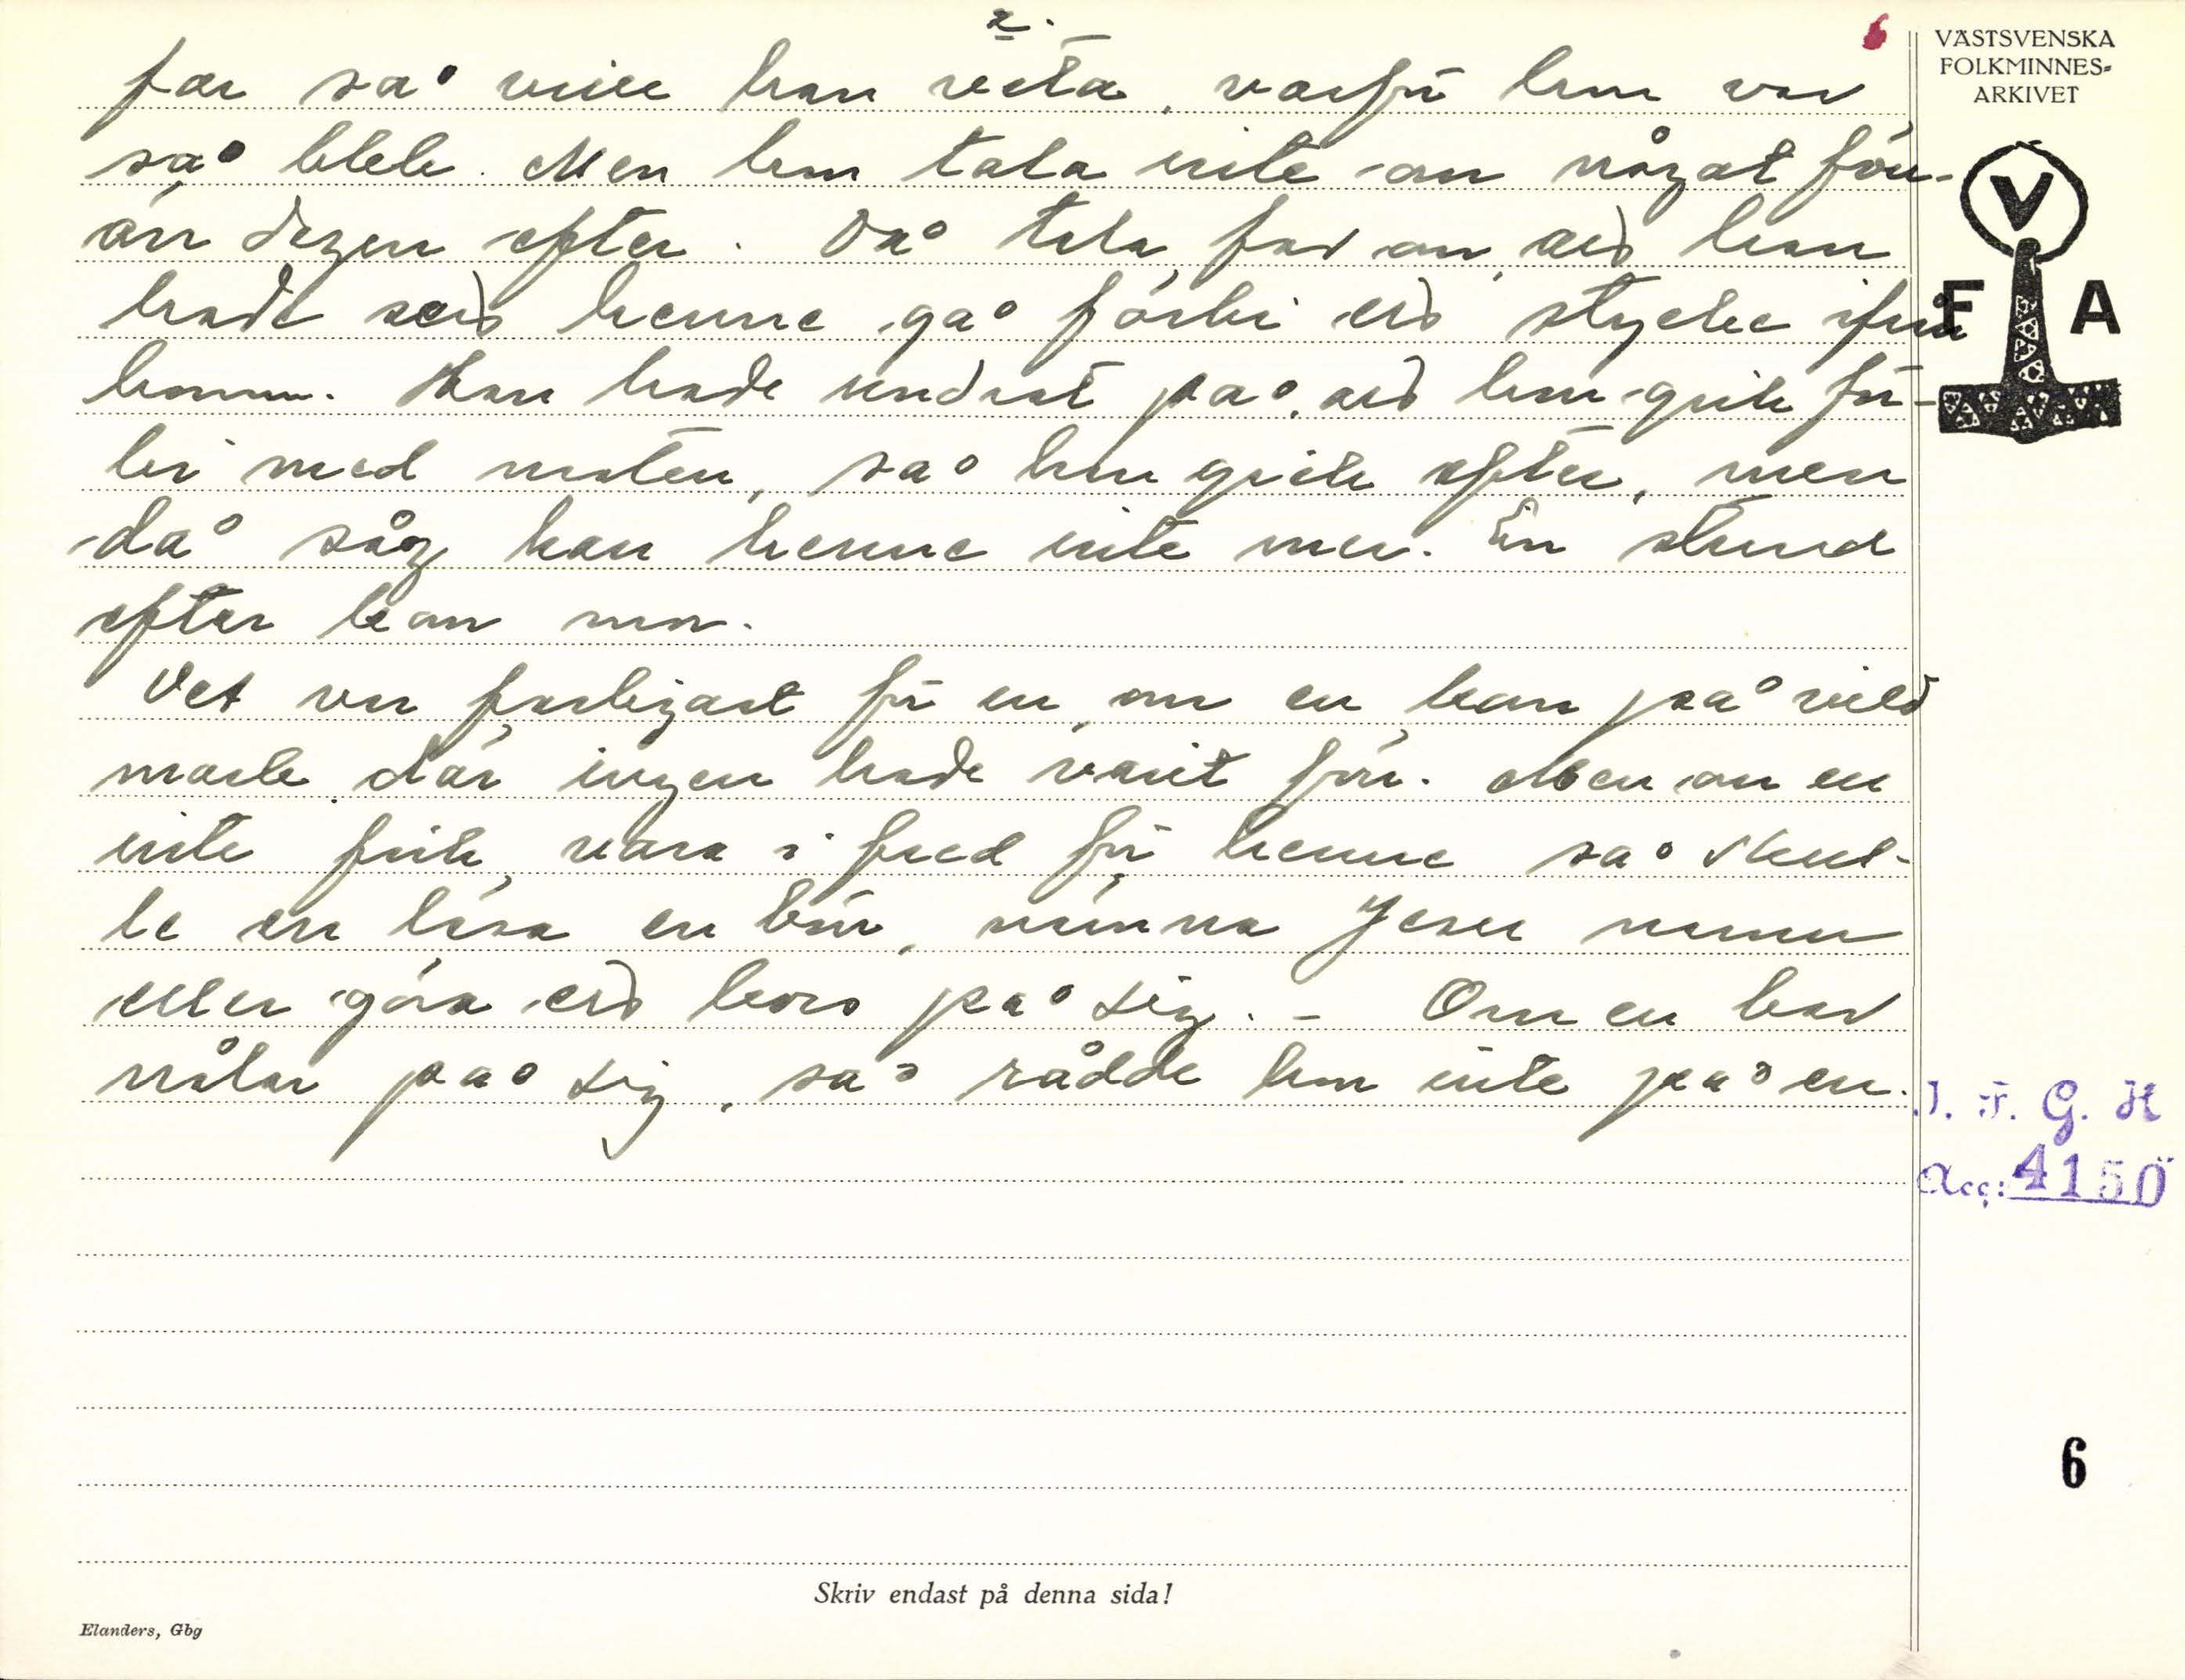 2.
6
far så ville han veta, varför hon var
så blek. Men hon tala inte om något förr-
än dagen efter. Då tala far om, att han
hade sett henne gå förbi ett stycke ifrå
honom. Han hade undrat på, att hon gick för-
bi med maten, så han gick efter, men
då såg han henne inte mer. En stund
efter kom mor.
Det var farligast för en, om en kom på vild
mark där ingen hade varit förr. Men om en
inte fick vara i fred för henne så skul-
le en läsa en bön, nämna Jesu namn
eller göra ett kors på sig. – Om en har
nålar på sig, så rådde hon inte på en.
VÄSTSVENSKA
FOLKMINNES-
ARKIVET
V
F A
I. F. G. H
Acc: 4150
6
Skriv endast på denna sida!
Elanders, Gbg